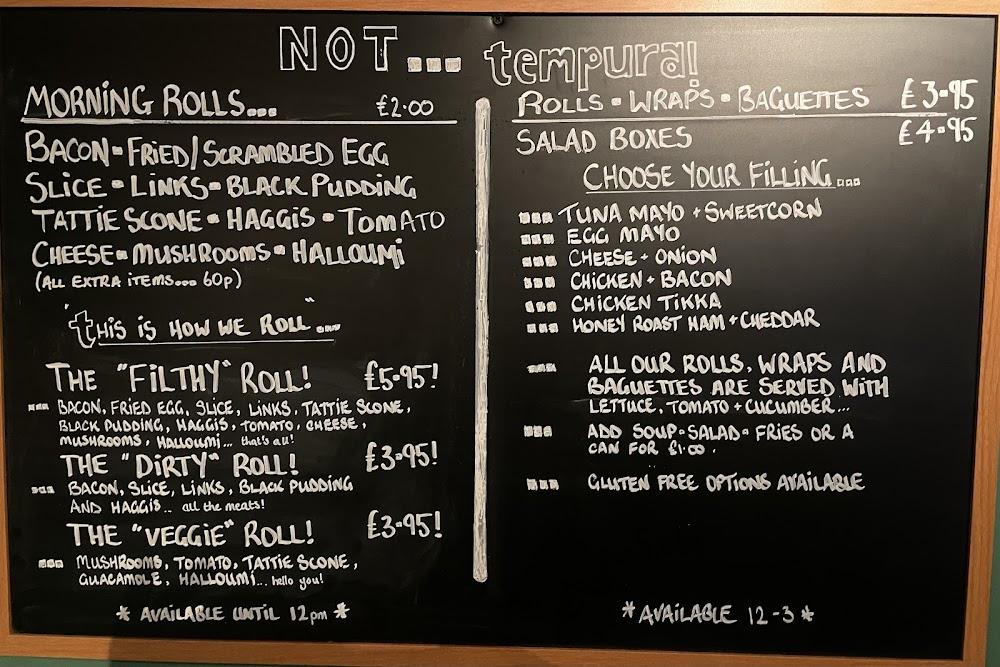 NOT... tempura!
MORNING ROLLS... £2.00
BACON - FRIED/SCRAMBLED EGG
SLICE - LINKS - BLACK PUDDING
TATTIE SCONE - HAGGIS - TOMATO
CHEESE - MUSHROOMS - HALLOUMI
(ALL EXTRA ITEMS... 60p)
"THIS IS HOW WE ROLL"...
THE "FILTHY" ROLL! £5.95!
BACON, FRIED EGG, SLICE, LINKS, TATTIE SCONE,
BLACK PUDDING, HAGGIS, TOMATO, CHEESE,
MUSHROOMS, HALLOUMI... that's all!
THE "DIRTY" ROLL! £3.95!
BACON, SLICE, LINKS, BLACK PUDDING
AND HAGGIS.. all the meats!
THE "VEGGIE" ROLL! £3.95!
MUSHROOMS, TOMATO, TATTIE SCONE,
GUACAMOLE, HALLOUMI... hello you!
* AVAILABLE UNTIL 12pm *
ROLLS - WRAPS - BAGUETTES £3.95
SALAD BOXES £4.95
CHOOSE YOUR FILLING...
... TUNA MAYO + SWEETCORN
... EGG MAYO
... CHEESE + ONION
... CHICKEN + BACON
... CHICKEN TIKKA
... HONEY ROAST HAM + CHEDDAR
... ALL OUR ROLLS, WRAPS AND
BAGUETTES ARE SERVED WITH
LETTUCE, TOMATO + CUCUMBER...
... ADD SOUP - SALAD - FRIES OR A
CAN FOR £1.00.
... GLUTEN FREE OPTIONS AVAILABLE
* AVAILABLE 12-3 *